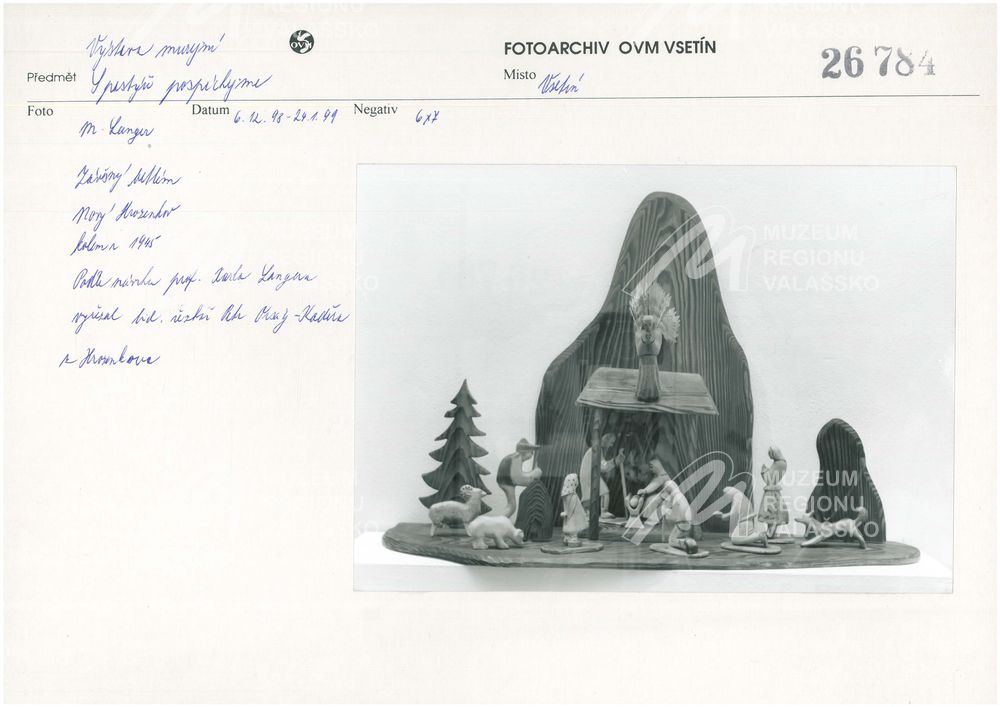 Výstava muzejní
OVM
FOTOARCHIV OVM VSETÍN
26 784
Předmět
S pastýři pospíchejme
Místo Vsetín
Foto
M. Langer
Datum 6.12.98-24.1.99
Negativ 6x7
Závěsný betlém
Nový Hrozenkov
kolem r 1945
Podle návrhu prof. Karla Langera
vyřezal lid. řezbář Orság
z Hrozenkova
MUZEUM
REGIONU
VALAŠSKO
MUZEUM
REGIONU
VALAŠSKO